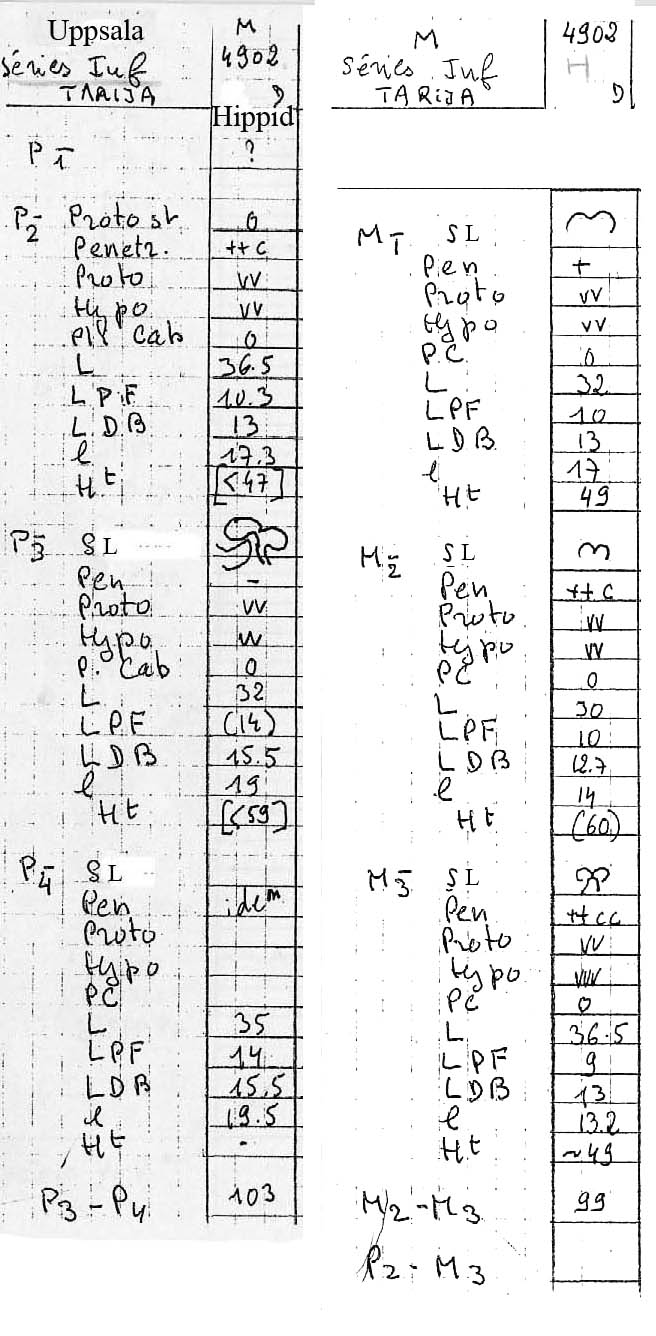 Uppsala M
Séries Inf 4902
TARIJA D
Hippid
P1 ?
P2 Proto st 0
Penetr. ++ c
Proto VV
Hypo VV
Pli Cab 0
L 36.5
LPF 10.3
LDB 13
l 17.3
Ht [<47]
P3 SL
Pen -
Proto VV
Hypo VV
P. Cab 0
L 32
LPF (14)
LDB 15.5
l 19
Ht [<59]
P4 SL
Pen idem
Proto
Hypo
PC
L 35
LPF 14
LDB 15.5
l 19.5
Ht -
P3 - P4 103
M 4902
Séries Inf H
TARIJA D
M1 SL
Pen +
Proto VV
Hypo VV
P.C. 0
L 32
LPF 10
LDB 13
l 17
Ht 49
M2 SL
Pen ++ c
Proto VV
Hypo VV
PC 0
L 30
LPF 10
LDB 12.7
l 14
Ht (60)
M3 SL
Pen ++ cc
Proto VV
Hypo
PC 0
L 36.5
LPF 9
LDB 13
l 13.2
Ht ~49
M2 - M3 99
P2 - M3